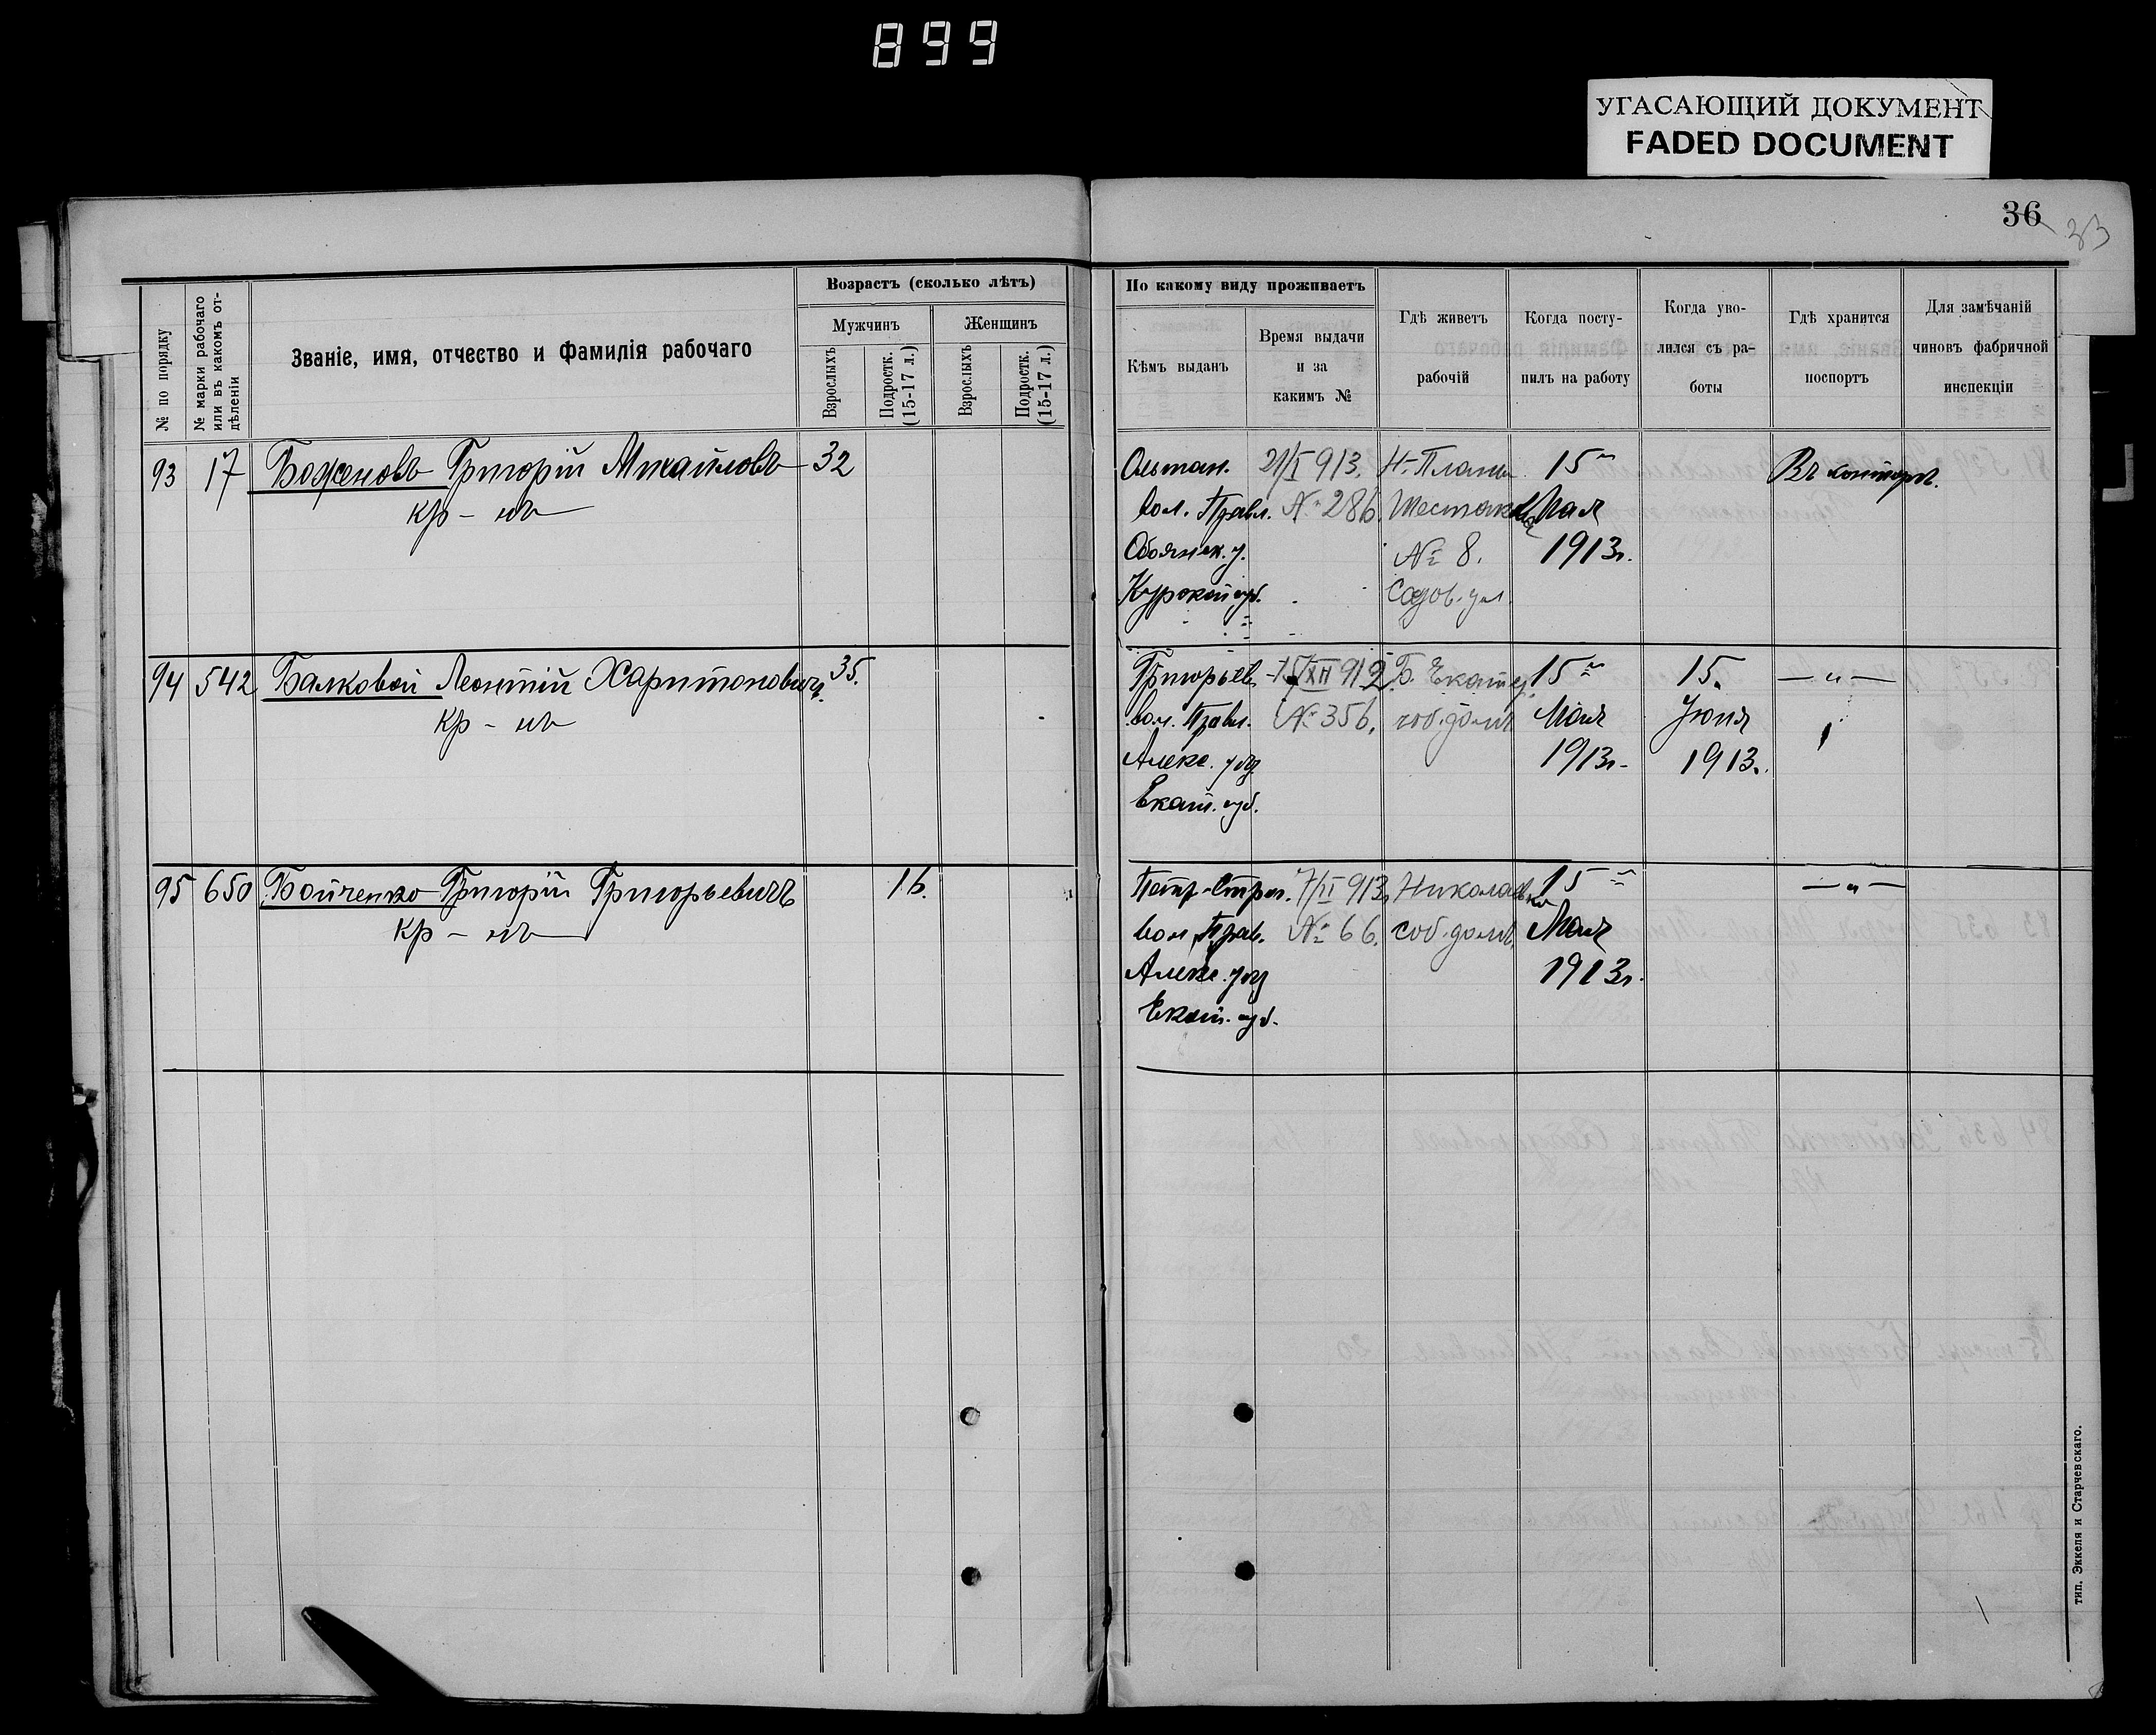 899
УГАСАЮЩИЙ ДОКУМЕНТ
FADED DOCUMENT
36
33
№ по порядку
№ марки рабочаго или въ какомъ отдѣленіи
Званіе, имя, отчество и фамилія рабочаго
Возрастъ (сколько лѣтъ)
Мужчинъ
Женщинъ
Взрослыхъ
Подростк. (15-17 л.)
Взрослыхъ
Подростк. (15-17 л.)
По какому виду проживаетъ
Кѣмъ выданъ
Время выдачи и за какимъ №
Гдѣ живетъ рабочій
Когда поступилъ на работу
Когда уволился съ работы
Гдѣ хранится поспортъ
Для замѣчаній чиновъ фабричной инспекціи
93 17 Боженовъ Григорій Михайловъ 32
кр-нъ
Ольшан. 21/I 913. Н-Планы 15 Въ конторѣ.
вол. Правл. № 286. Мая
Обоянск. у. № 8. 1913г.
Курской губ. Садов. ул.
94 542 Балковой Леонтій Харитоновичъ. 35.
кр-нъ
Григорьев. XII 912 Б. Екатер. 15 15. —„—
вол. Правл. № 356. соб. домъ Мая Іюня
Алекс. уѣз. 1913г. 1913г.
Екат. губ.
95 650 Бойченко Григорій Григорьевичъ 16.
кр-нъ
7/II 913 Николаевка 15 —„—
вол. Прав. № 66. соб. домъ. Мая
Алекс. уѣз 1913г.
Екат. губ.
тип. Эккеля и Старчевскаго.